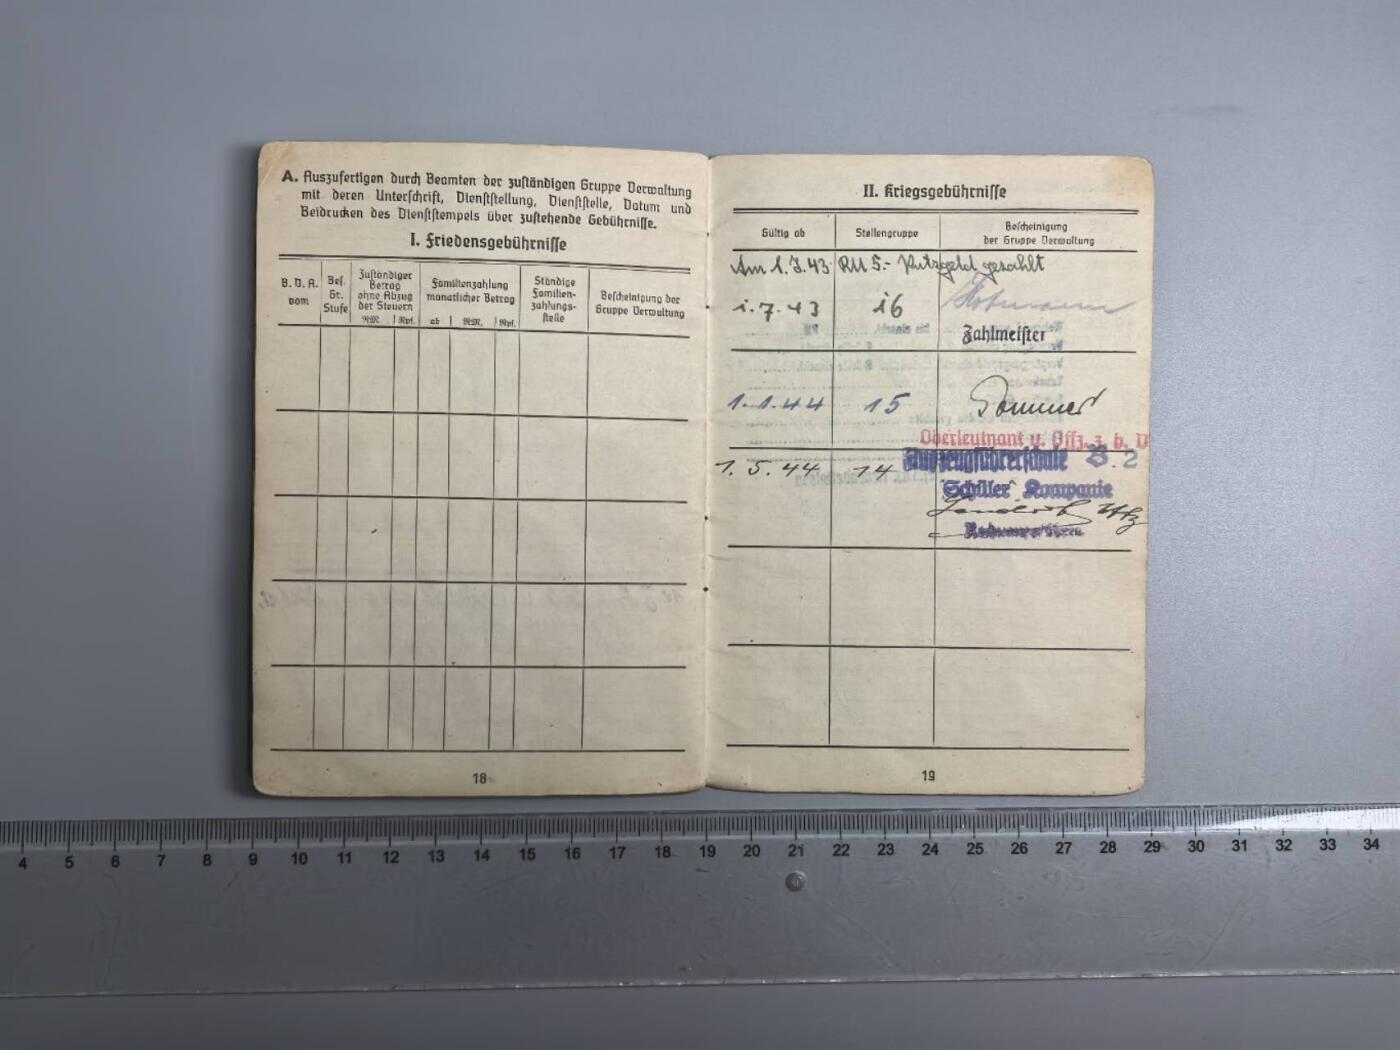 A. Auszufertigen durch Beamten der zuständigen Gruppe Verwaltung
mit deren Unterschrift, Dienststellung, Dienststelle, Datum und
Beidrucken des Dienststempels über zustehende Gebührnisse.
I. Friedensgebührnisse
B. D. A.
vom
Bes.
Gr.
Stufe
Zuständiger
Betrag
ohne Abzug
der Steuern
RM.
Rpf.
Familienzahlung
monatlicher Betrag
ab
RM.
Rpf.
Ständige
Familien-
zahlungs-
stelle
Bescheinigung der
Gruppe Verwaltung
18
II. Kriegsgebührnisse
Gültig ab
Stellengruppe
Bescheinigung
der Gruppe Verwaltung
Am 1.7.43 RM 5.- Putzgeld gezahlt
1.7.43 16
Zahlmeister
1.1.44 15 Sommer
Oberleutnant u. Offz. z. b. V
1.5.44 14 Flugzeugführerschule B. 2
"Schüler" Kompanie
Uffz
Rechnungsführer
19
4 5 6 7 8 9 10 11 12 13 14 15 16 17 18 19 20 21 22 23 24 25 26 27 28 29 30 31 32 33 34